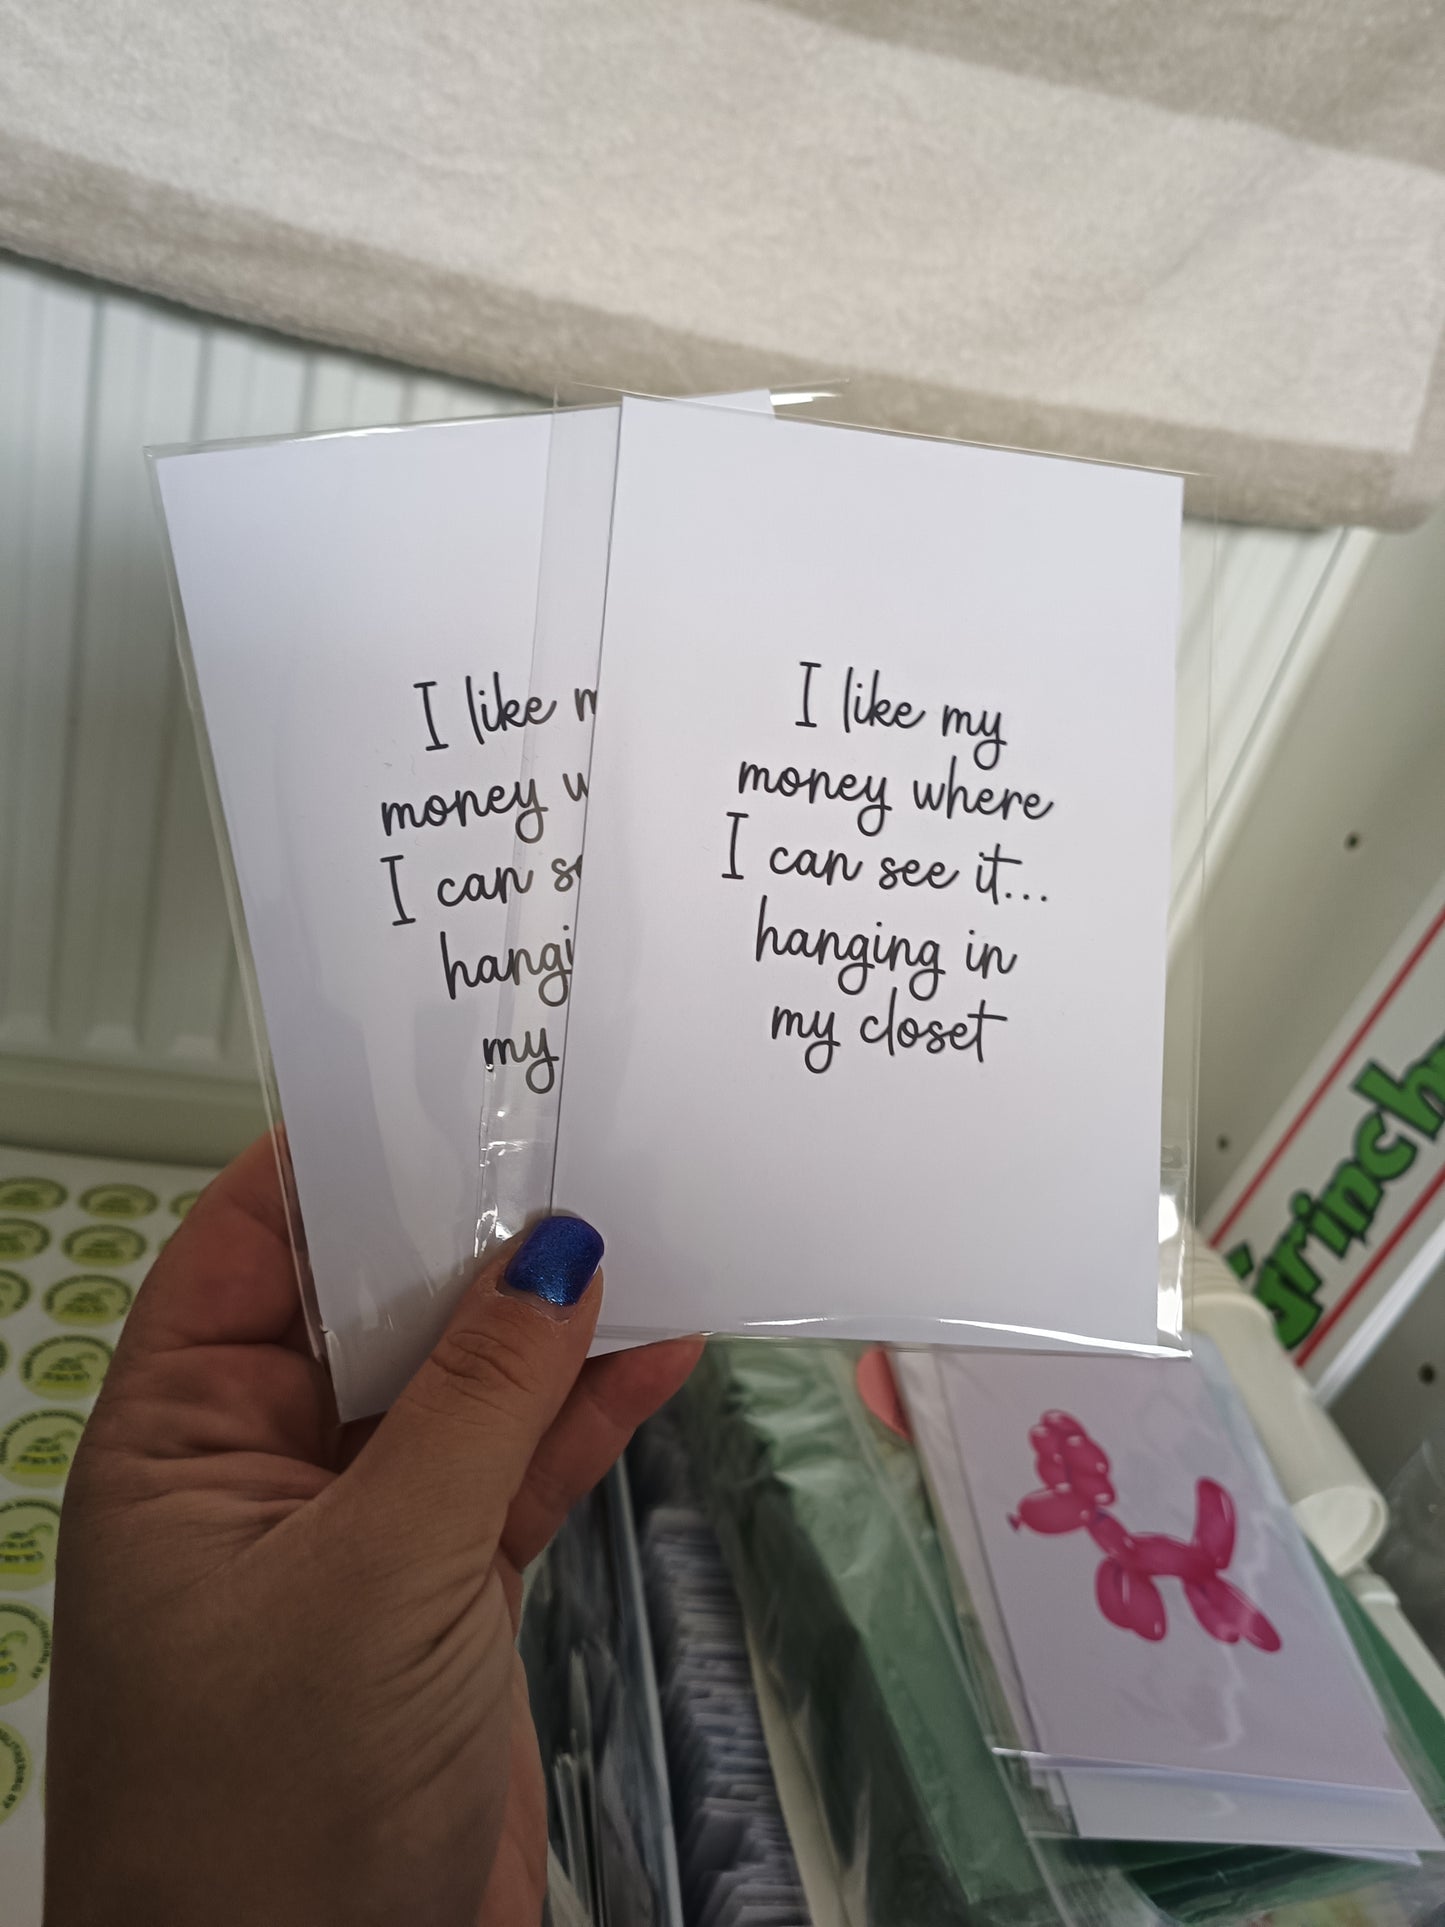 I like m
money w
I can se
hangi
my
I like my
money where
I can see it...
hanging in
my closet
grinch